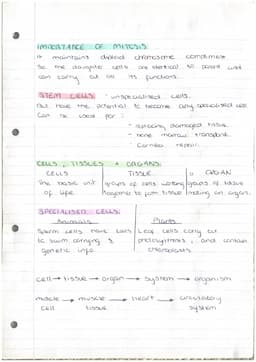 IMPORTANCE OF MITOSIS
it maintains diploid chromosome compliment
so the daughter cells are identical to parent and
can carry out all its functions.
STEM CELLS - unspecialised cells.
But have the potential to become any specialised cell
Can be used for:
- replacing damaged tissue
- bone marrow transplant
- Cornea repair.
CELLS, TISSUES & ORGANS:
CELLS TISSUE ORGAN
The basic unit groups of cells working groups of tissue
of life. together to form tissue making an organ.
SPECIALISED CELLS:
Animals Plants
Sperm cells have tails Leaf cells carry out
to swim, carrying photosynthesis, and contain
genetic info. chloroplasts.
cell → tissue → organ → system → organism
muscle → muscle → heart → circulatory
cell tissue system